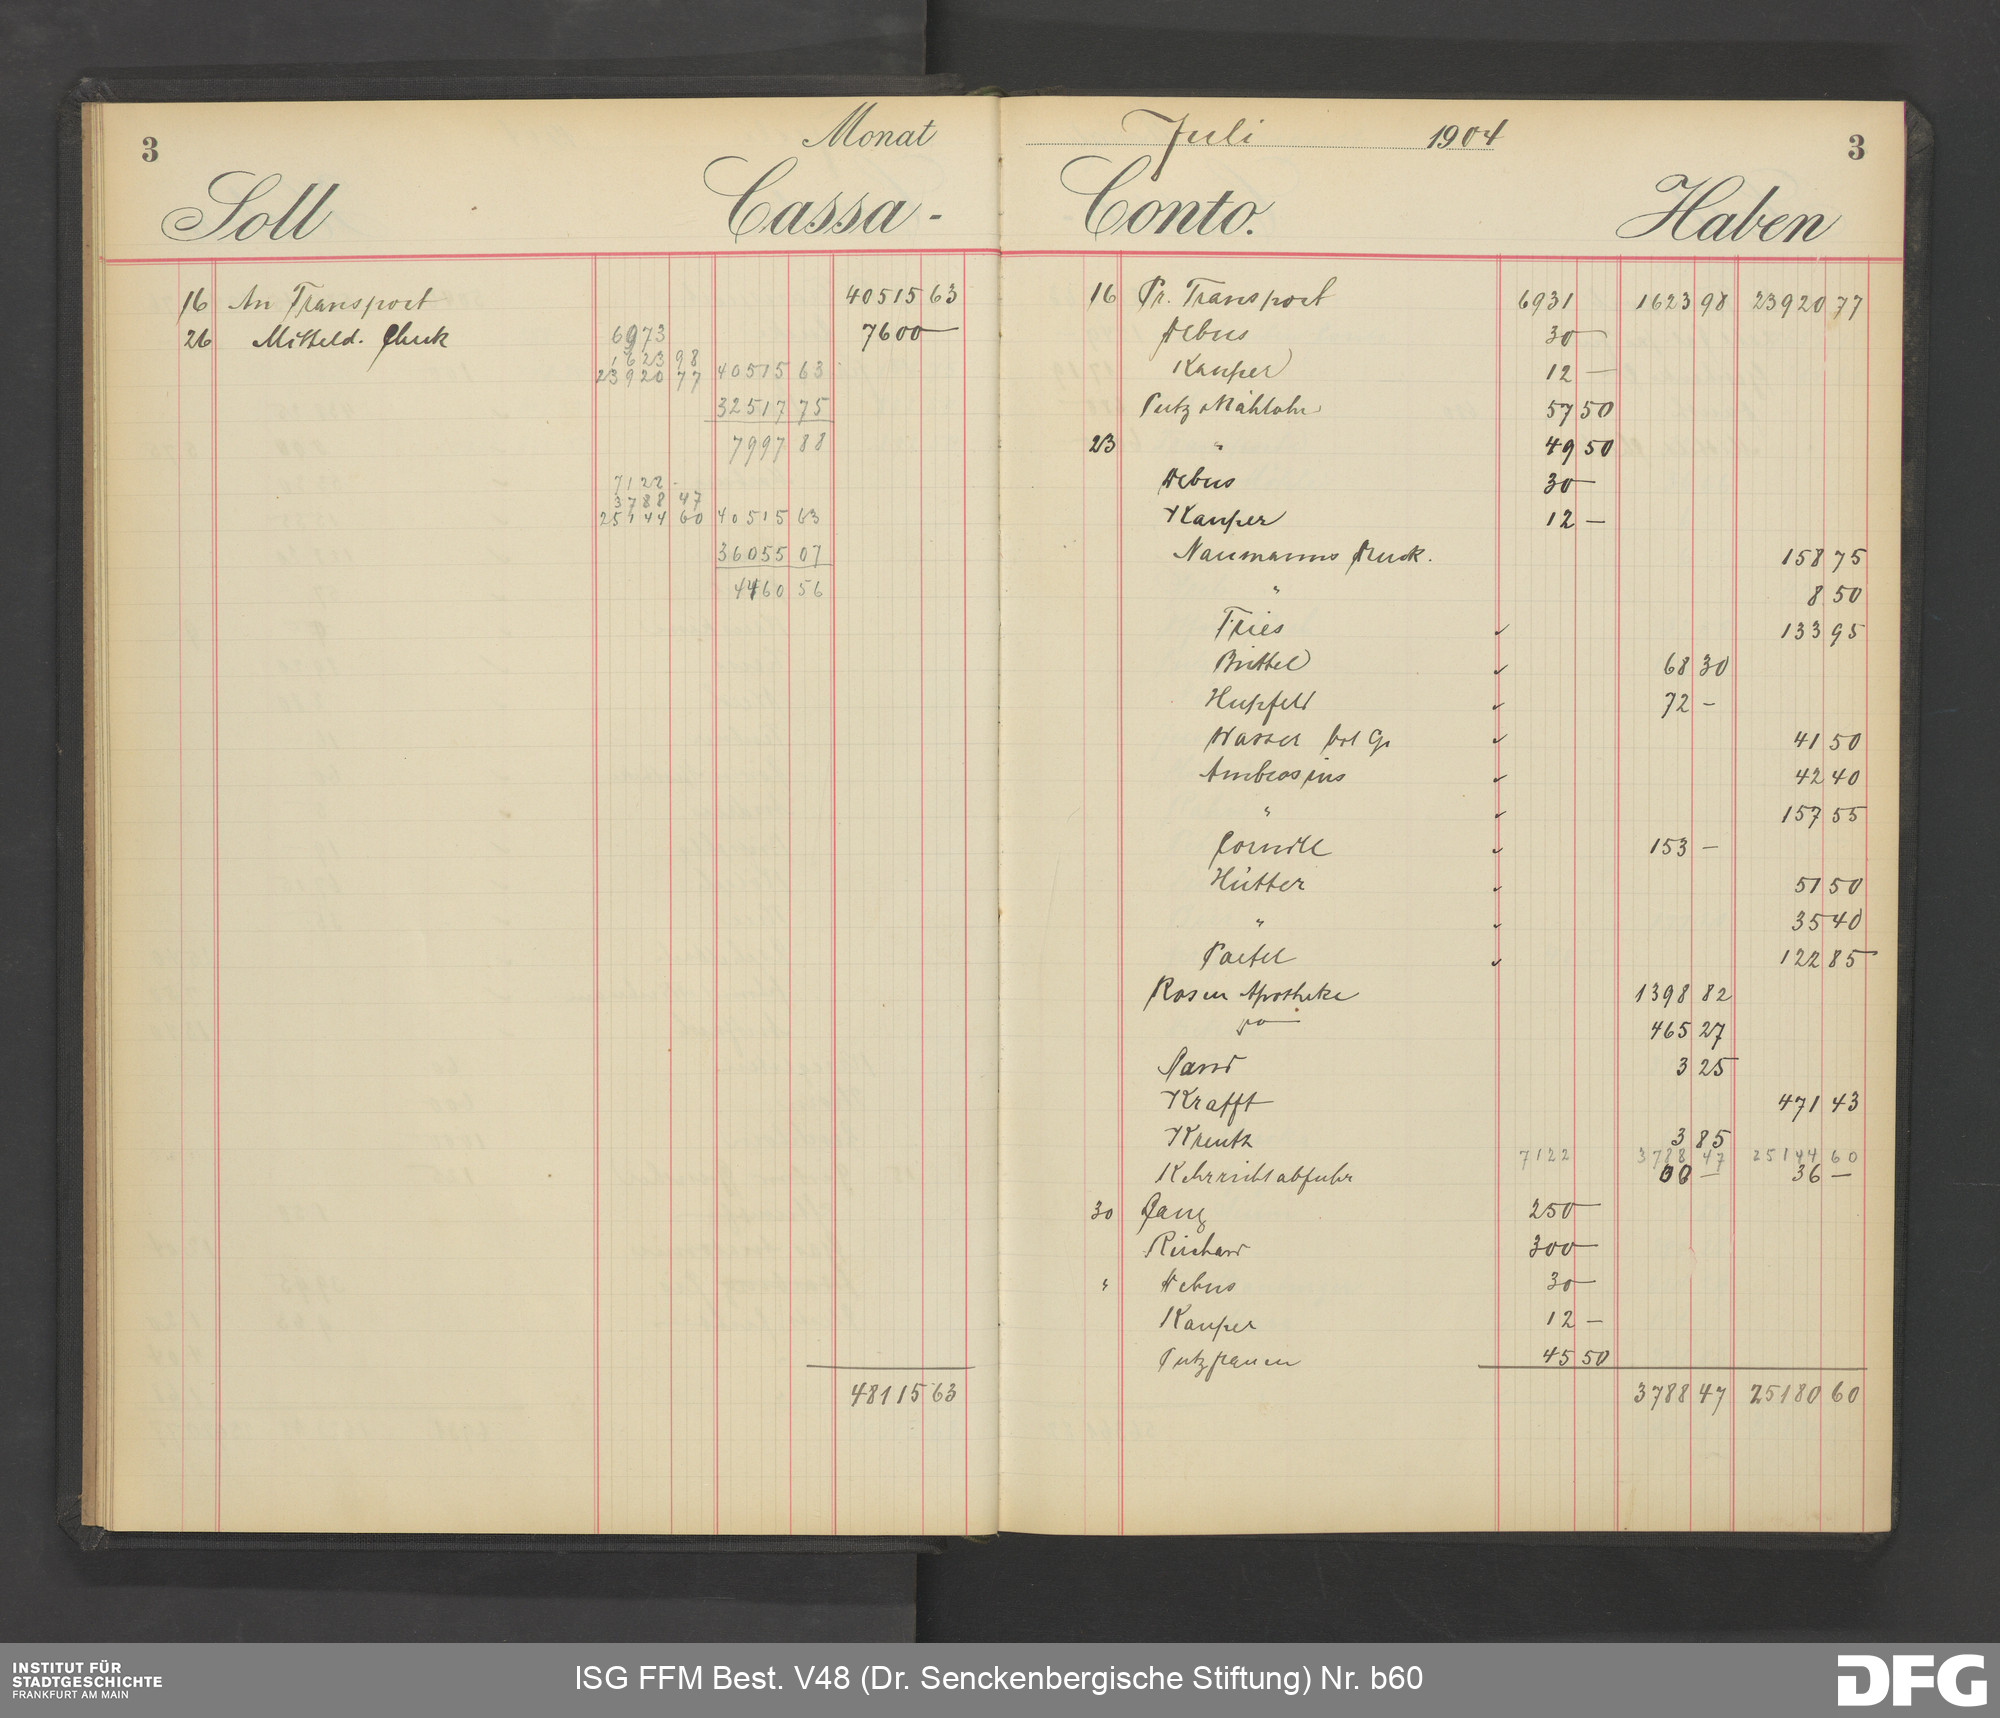 3
Monat
Soll
Cassa -
16 An Transport 40515 63
26 Mitteld. Check 6973 7600 —
1623 98
23920 77 40515 63
32517 75
7997 88
7122 -
3788 47
25144 60 40515 63
36055 07
4460 56
48115 63
Juli 1904
3
Conto.
Haben
16 Pr. Transport 6931 1623 98 23920 77
Debus 30 —
Kauper 12 —
Putz Mählohn 57 50
23 " 49 50
Debus 30 —
Kauper 12 —
Naumanns Druck. 158 75
" 8 50
Fries ✓ 133 95
Brittel ✓ 68 30
Hupfeld ✓ 72 —
Wasser ✓ 41 50
Ambrosius ✓ 42 40
" ✓ 157 55
✓ 153 —
Hütter ✓ 51 50
" ✓ 35 40
✓ 122 85
Rosen Apotheke 1398 82
do — 465 27
Sand 3 25
Krafft 471 43
Kreutz 3 85
7122 3788 47 25144 60
Kehrrichtabfuhr 36 —
30 Ganz 250 —
Reichard 300 —
" Debus 30 —
Kauper 12 —
Putzfrauen 45 50
3788 47 25180 60
INSTITUT FÜR
STADTGESCHICHTE
FRANKFURT AM MAIN
ISG FFM Best. V48 (Dr. Senckenbergische Stiftung) Nr. b60
DFG